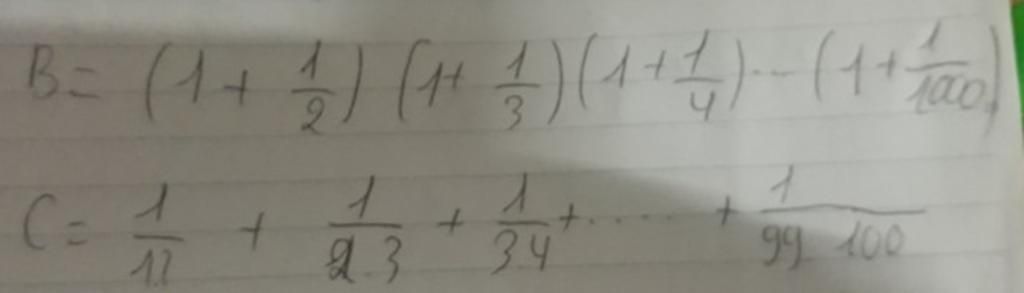 B = (1 + 1/2) (1 + 1/3) (1 + 1/4) ... (1 + 1/1000)
C = 1/1.2 + 1/2.3 + 1/3.4 + ..... + 1/99.100